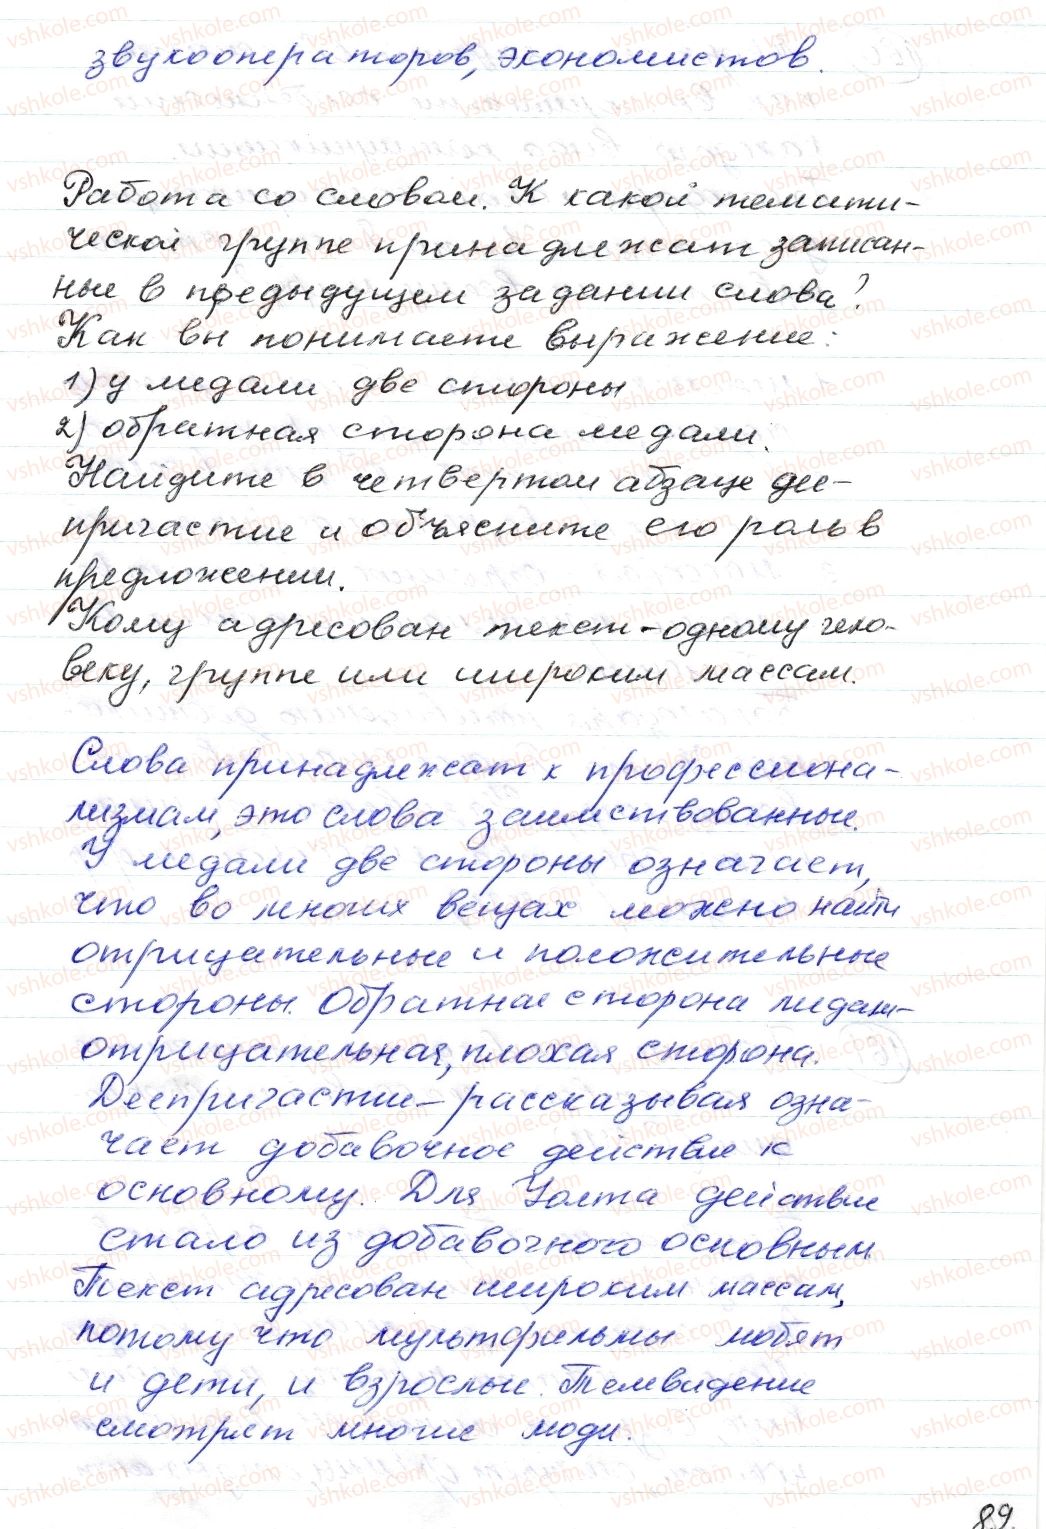 звукооператоров, экономистов.
Работа со словом. К какой темати-
ческой группе принадлежат записан-
ные в предыдущем задании слова?
Как вы понимаете выражение:
1) у медали две стороны
2) обратная сторона медали.
Найдите в четвертом абзаце дее-
причастие и объясните его роль в
предложении.
Кому адресован текст - одному чело-
веку, группе или широким массам.
Слова принадлежат к профессиона-
лизмам, это слова заимствованные.
У медали две стороны означает,
что во многих вещах можно найти
отрицательные и положительные
стороны. Обратная сторона медали-
отрицательная, плохая сторона.
Деепричастие - рассказывая озна-
чает добавочное действие к
основному. Для Уолта действие
стало из добавочного основным.
Текст адресован широким массам,
потому что мультфильмы любят
и дети, и взрослые. Телевидение
смотрят многие люди.
89.